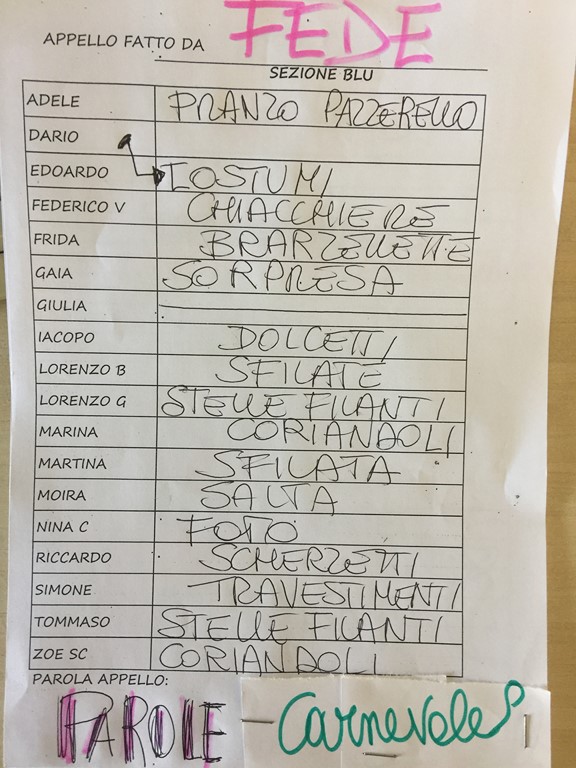 APPELLO FATTO DA FEDE
SEZIONE BLU
ADELE PRANZO PAZZERELLO
DARIO
EDOARDO COSTUMI
FEDERICO V CHIACCHIERE
FRIDA BRARZELLETTE
GAIA SORPRESA
GIULIA
IACOPO DOLCETTI
LORENZO B SFILATE
LORENZO G STELLE FILANTI
MARINA CORIANDOLI
MARTINA SFILATA
MOIRA SALTA
NINA C FOTO
RICCARDO SCHERZETTI
SIMONE TRAVESTIMENTI
TOMMASO STELLE FILANTI
ZOE SC CORIANDOLI
PAROLA APPELLO:
PAROLE Carnevale